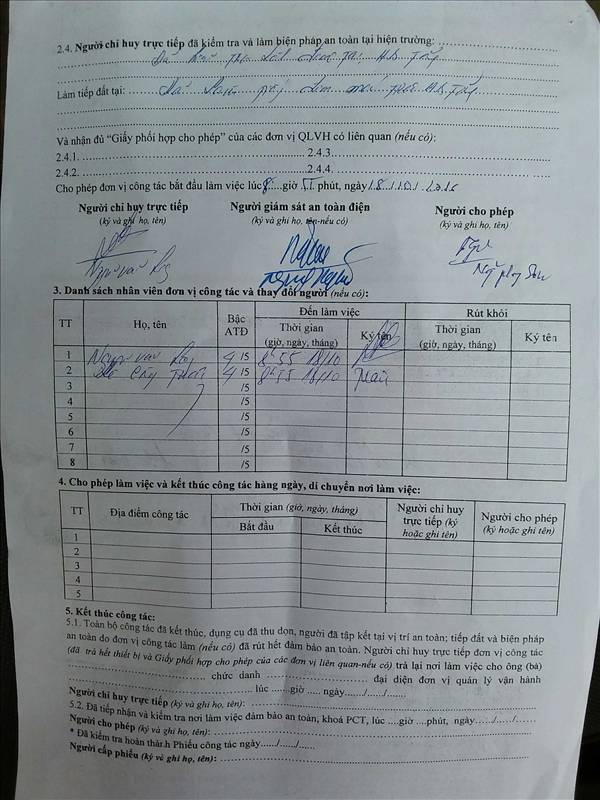 2.4. Người chỉ huy trực tiếp đã kiểm tra và làm biện pháp an toàn tại hiện trường: ........
Làm tiếp đất tại: ........
Và nhận đủ “Giấy phối hợp cho phép” của các đơn vị QLVH có liên quan (nếu có):
2.4.1. ........ 2.4.3. ........
2.4.2. ........ 2.4.4. ........
Cho phép đơn vị công tác bắt đầu làm việc lúc 8 ....giờ 55 phút, ngày 18/10/2016
Người chỉ huy trực tiếp Người giám sát an toàn điện Người cho phép
(ký và ghi họ, tên) (ký và ghi họ, tên-nếu có) (ký và ghi họ, tên)
3. Danh sách nhân viên đơn vị công tác và thay đổi người (nếu có):
TT Họ, tên Bậc ATĐ Đến làm việc Rút khỏi
Thời gian (giờ, ngày, tháng) Ký tên Thời gian (giờ, ngày, tháng) Ký tên
1 Nguyễn văn 4 /5 8h55 18/10
2 4 /5 8h55 18/10
3 /5
4 /5
5 /5
6 /5
7 /5
8 /5
4. Cho phép làm việc và kết thúc công tác hàng ngày, di chuyển nơi làm việc:
TT Địa điểm công tác Thời gian (giờ, ngày, tháng) Người chỉ huy trực tiếp (ký hoặc ghi tên) Người cho phép (ký hoặc ghi tên)
Bắt đầu Kết thúc
1
2
3
4
5
5. Kết thúc công tác:
5.1. Toàn bộ công tác đã kết thúc, dụng cụ đã thu dọn, người đã tập kết tại vị trí an toàn; tiếp đất và biện pháp
an toàn do đơn vị công tác làm (nếu có) đã rút hết đảm bảo an toàn. Người chỉ huy trực tiếp đơn vị công tác
(đã trả hết thiết bị và Giấy phối hợp cho phép của các đơn vị liên quan-nếu có) trả lại nơi làm việc cho ông (bà)
........ chức danh ........ đại diện đơn vị quản lý vận hành
........ lúc ......giờ ..... ngày....../....../......
Người chỉ huy trực tiếp (ký và ghi họ, tên): ........
5.2. Đã tiếp nhận và kiểm tra nơi làm việc đảm bảo an toàn, khoá PCT, lúc ....giờ ....phút, ngày....../....../......
Người cho phép (ký và ghi họ, tên): ........
* Đã kiểm tra hoàn thành Phiếu công tác ngày....../....../......
Người cấp phiếu (ký và ghi họ, tên): ........